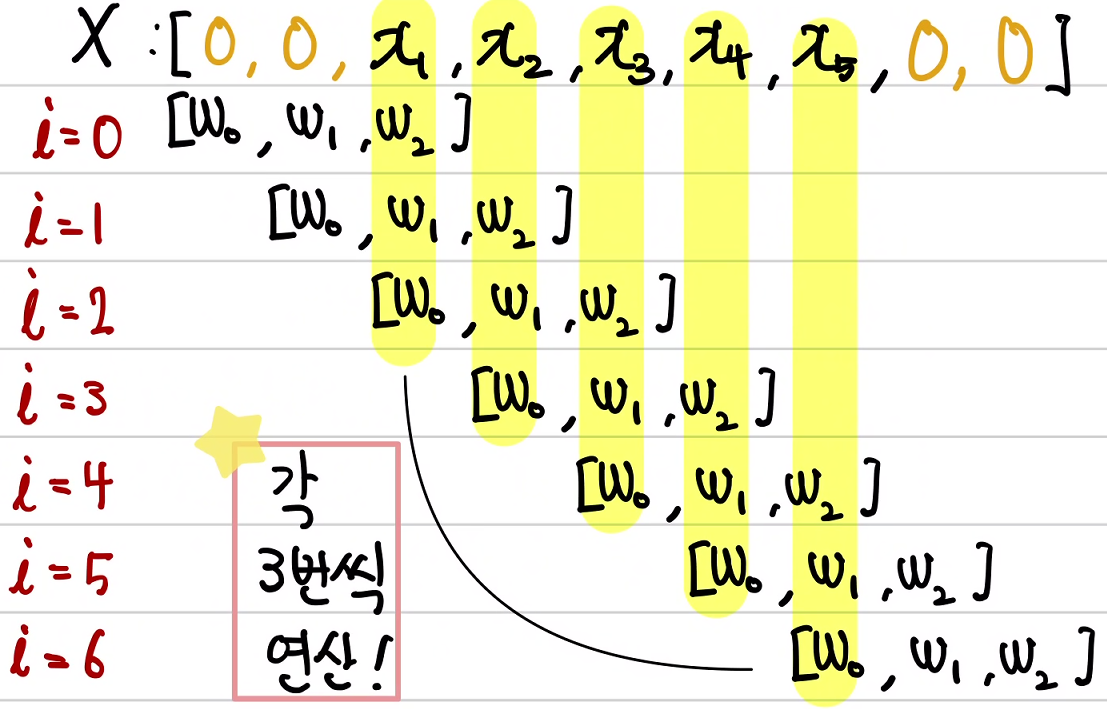 X : [0, 0, x₁, x₂, x₃, x₄, x₅, 0, 0]
i=0 [w₀, w₁, w₂]
i=1 [w₀, w₁, w₂]
i=2 [w₀, w₁, w₂]
i=3 [w₀, w₁, w₂]
i=4 각 [w₀, w₁, w₂]
i=5 3번씩 [w₀, w₁, w₂]
i=6 연산! [w₀, w₁, w₂]